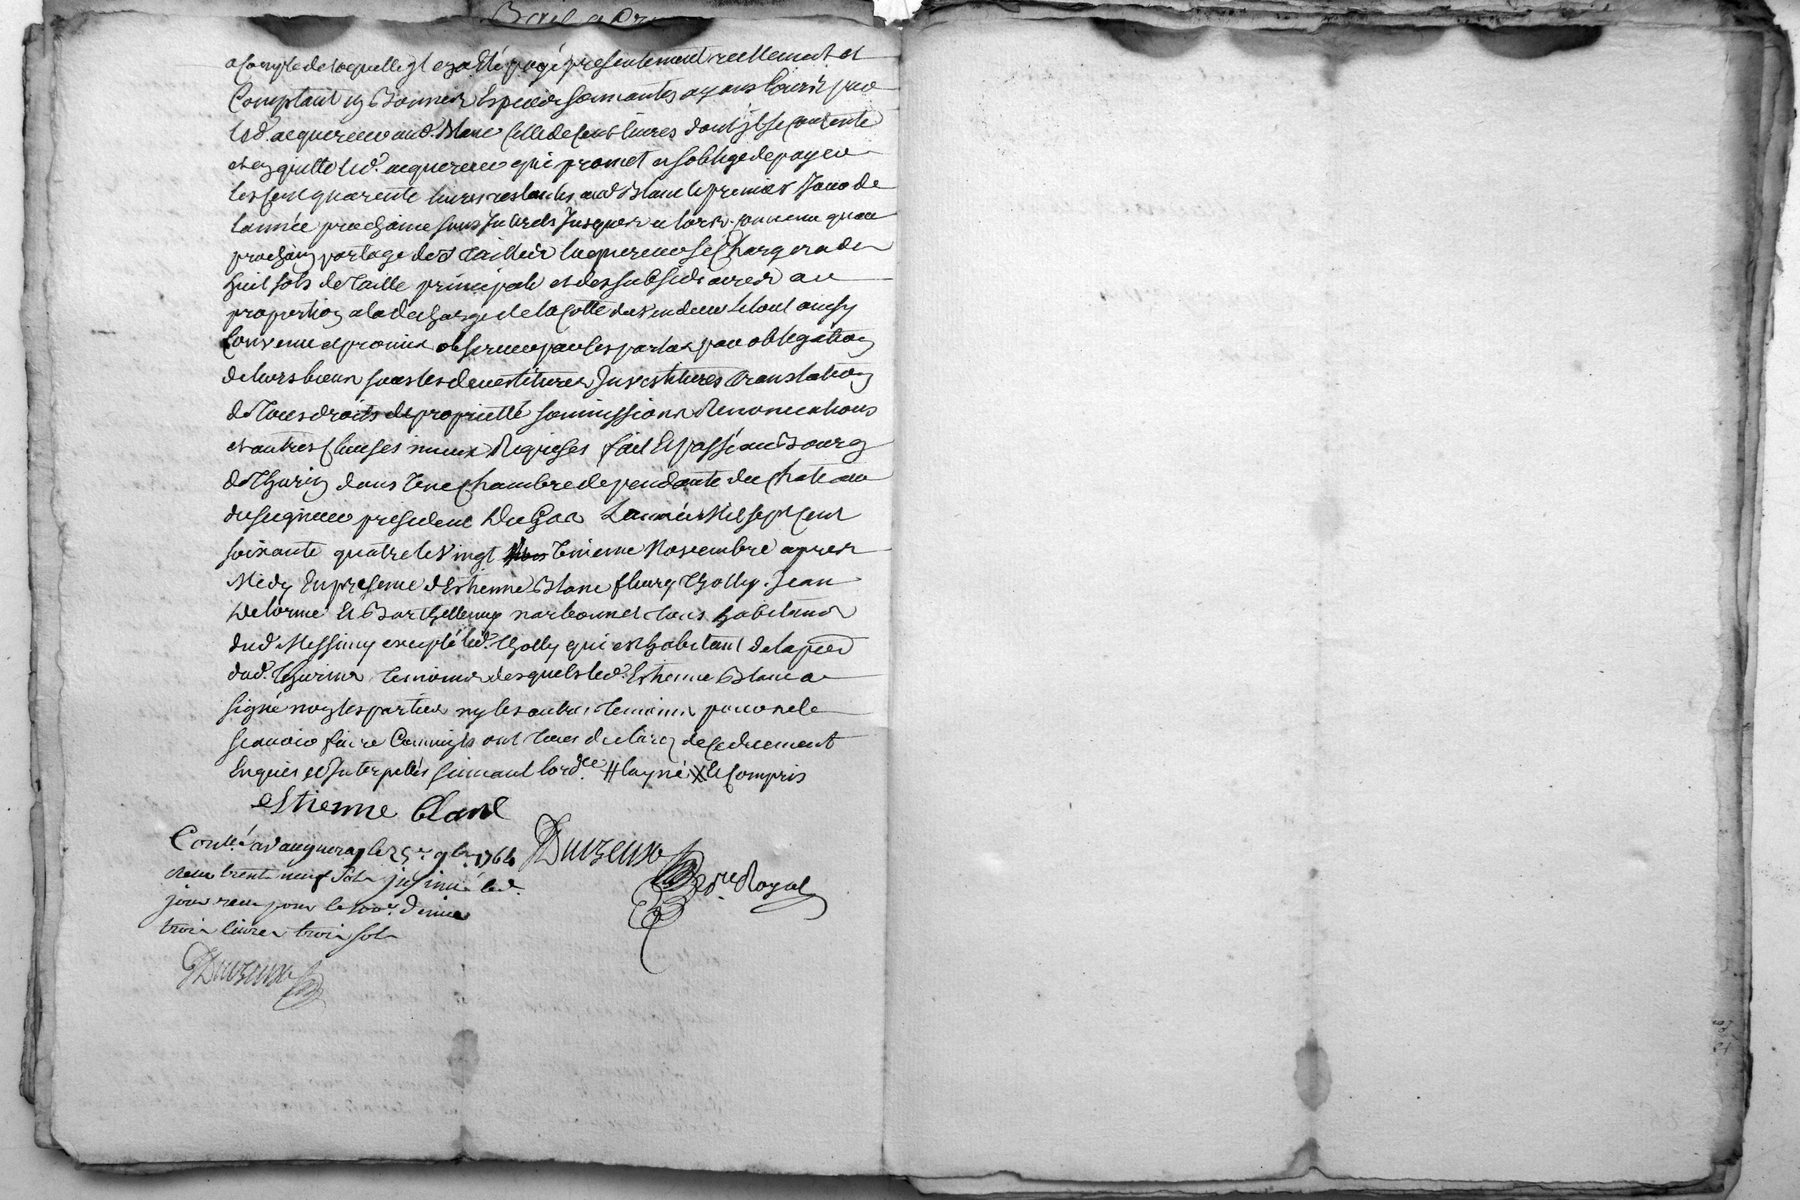 a compte de laquelle jl en a Eté payé presentement reellement et
Comptant en Bonnes Especes sonnantes ayans Cours par
led. acquereur aud. Blanc Celle de Cent livres dont jl se contente
et en quitte led. acquereur qui promet et soblige de payer
les Cent quarente livres restantes aud Blanc le premier Jour de
lannée prochaine sans Interets Jusques a lors. convenu quau
prochain partage des tailles lacquereur se Chargera de
huit sols de Taille principale et des subsidiaires au
proportion a la decharge de la Cotte du vendeur le tout ainsy
Convenu et promis observer par les parties par obligation
de leurs biens sous les devestitures Investitures translation
de tous droits de proprietté soumissions Renonciations
et autres Clauses mieux Requises fait Et passé au Bourg
de Thurin dans Une Chambre dependante du Chateau
du seigneur president Dugas Lannée Mil sept Cent
soixante quatre le Vingt Unieme Novembre apres
Midy En presence d'Estienne Blanc fleury Tholly. Jean
Delorme Et Barthellemy narbonnet tous habitans
dud. Messimy excepté led. Tholly qui est habitant de la psse
dud. Thurins temoins desquels led. Estienne Blanc a
signé non les parties ny les autres temoins pour ne le
scavoir faire Comm'ils ont tous declaré de ce duement
Enquis et Interpellés suivant lord.ce # layné X le Compris
estienne blanc
Conllé a vaugneray le 25e 9bre 1764
receu trente neuf sols jnsinué led.
jour receu pour le 100e denier
trois livres trois sols
Duvzeum
nre Royal